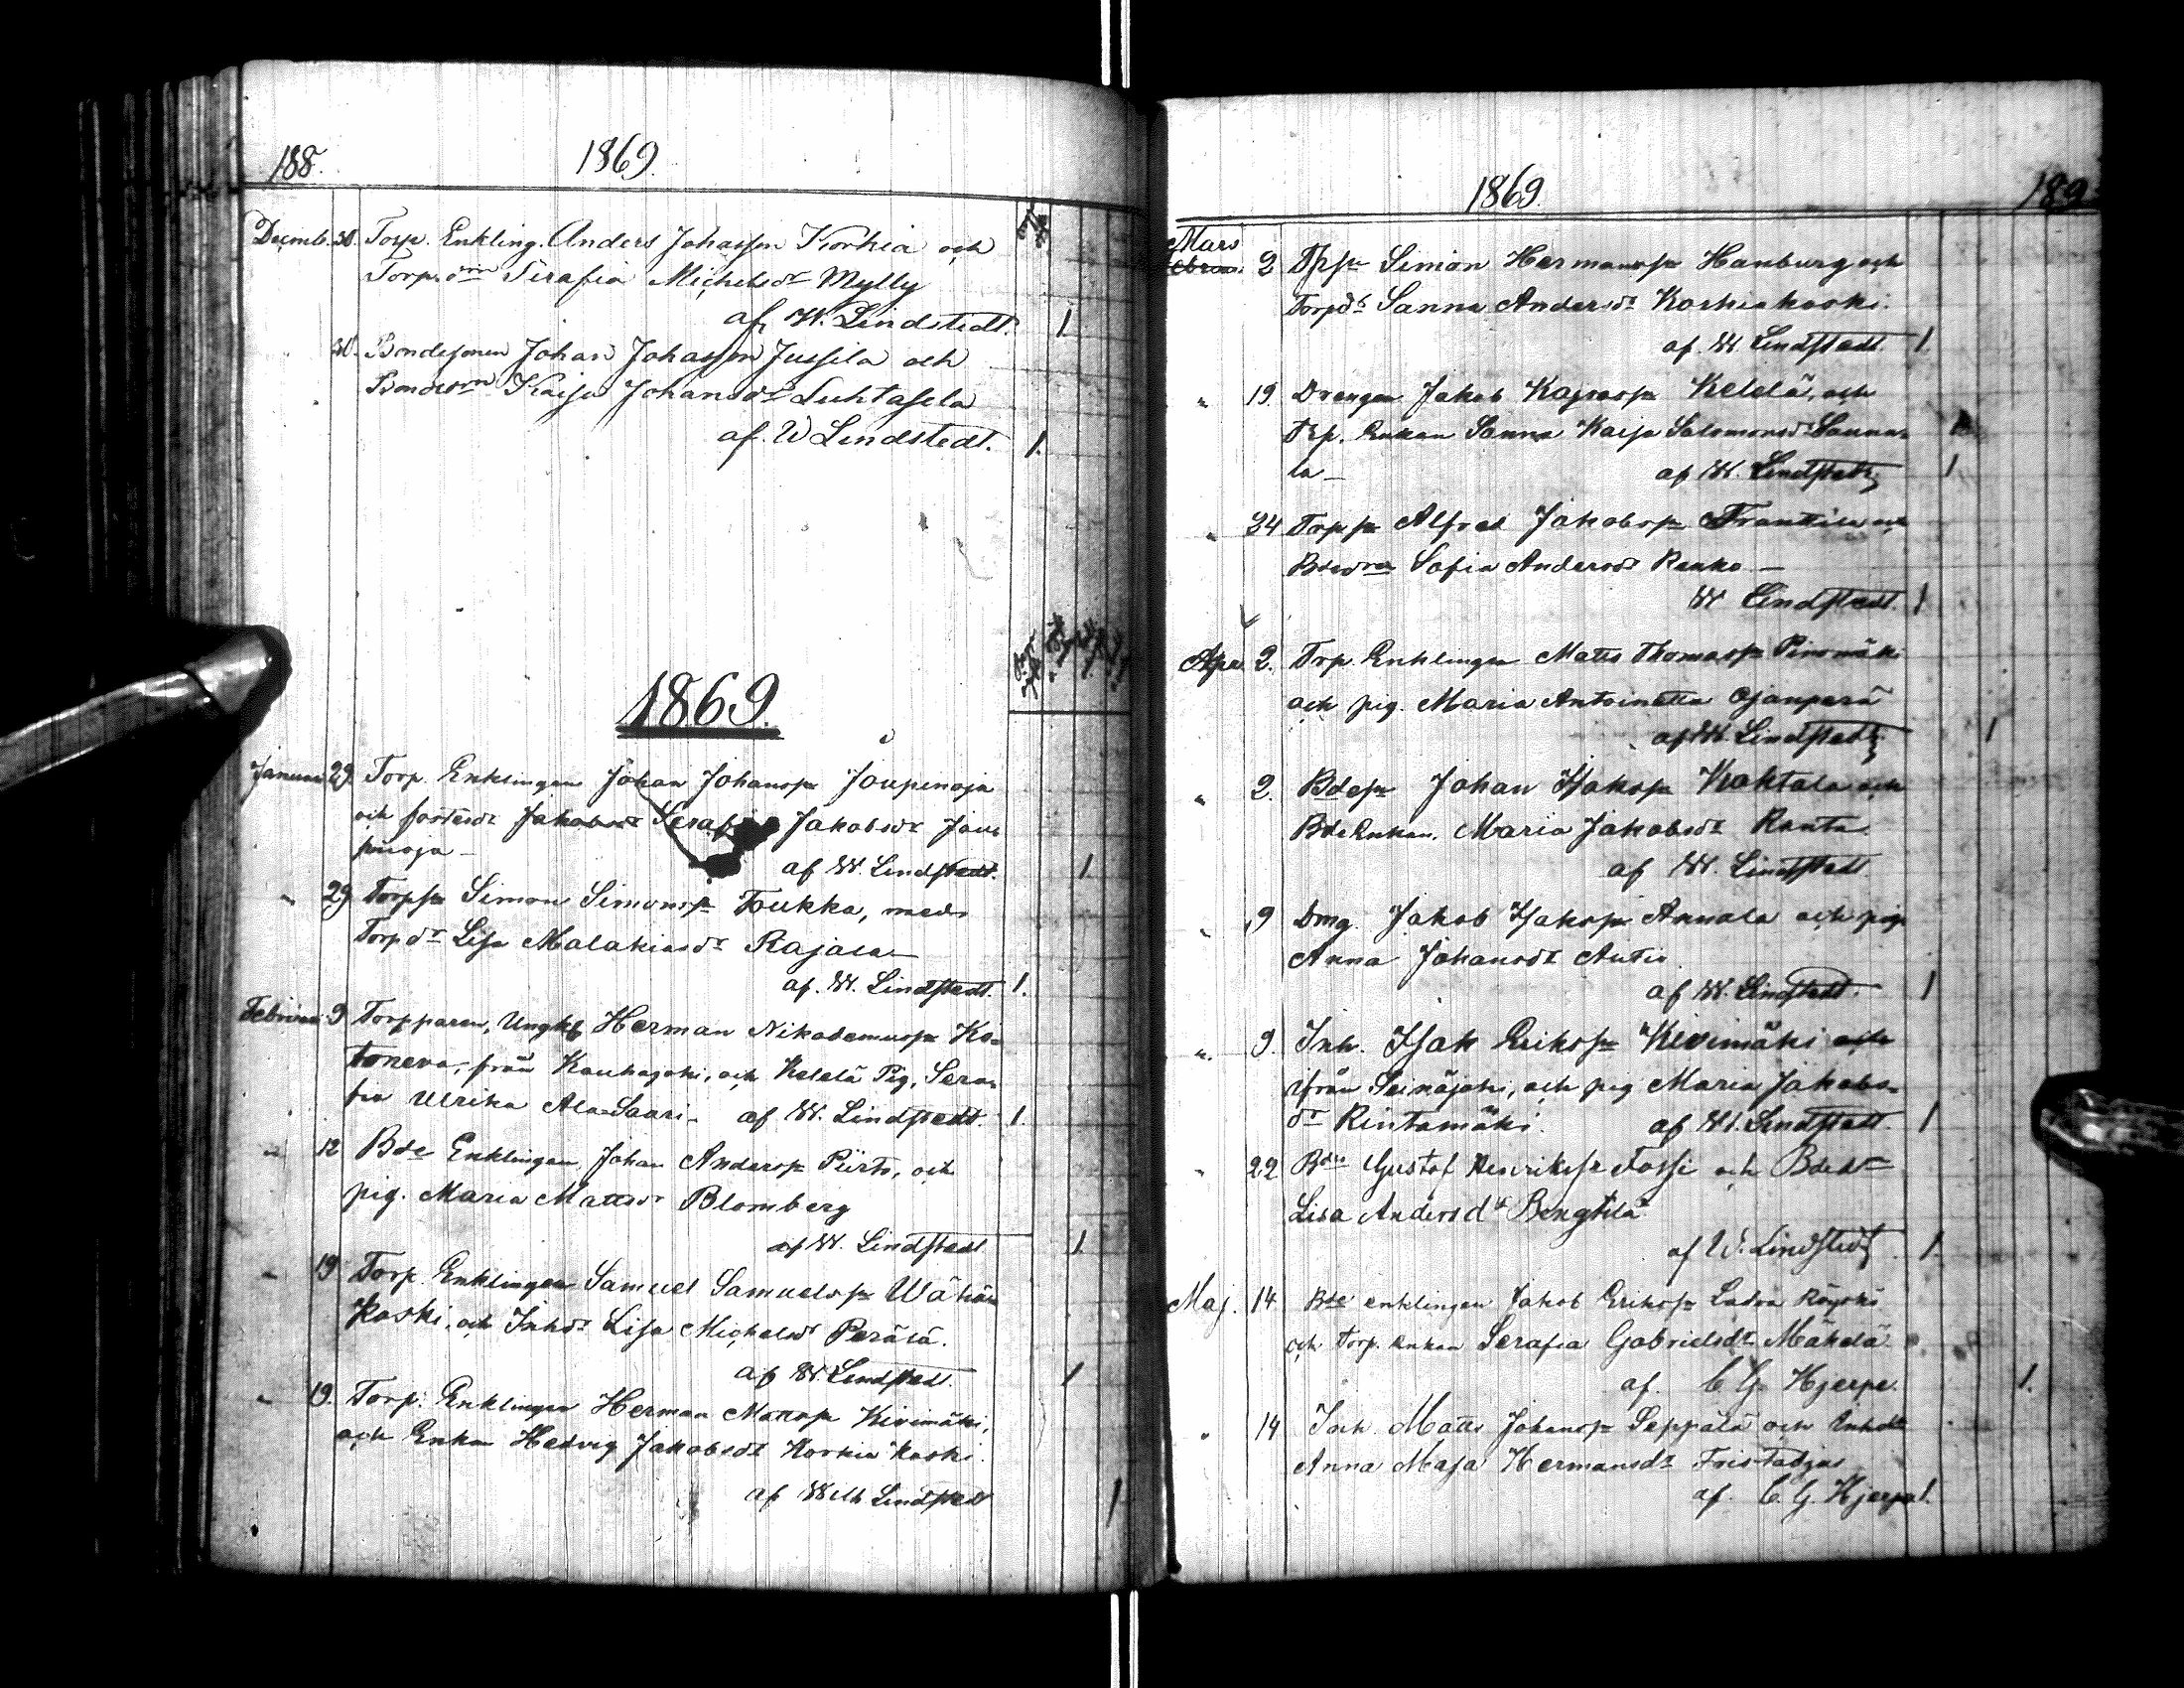 188.
1869.
Decemb. 30. Torp. Enkling. Anders Johansson Korkia och
Torp.drn Serafia Michelsdr Mylly
af W. Lindstedt. 1
30. Bondesonen Johan Johansson Jussila och
Bondedrn Kaisa Johansdr Luhtasela
af. W Lindstedt. 1.
1869.
Januari 29 Torp. Enklingen Johan Johansson Joupinoja
och Jakobsdr Serafia Jakobsdr Jou
pinoja –
af W. Lindstedt. 1
" 29 Torpsn Simon Simonsn Tukka, med
Torpdr Lisa Malakiasdr Rajala –
af. W. Lindstedt. 1.
Februari 9 Torpparen, Ungk Herman Nikodemussn Ko-
toneva, från Kauhajoki, och Kelelä Pig. Sera-
fia Ulrika Ala-Saari – af W. Lindstedt. 1.
" 12 Bde Enklingen Johan Anderssn Piirto, och
pig. Maria Mattsdr Blomberg
af W. Lindstedt 1.
" 19 Torp. Enklingen Samuel Samuelssn Wähä
Koski, och Inhdr Lisa Michelsdr Perälä.
af W. Lindstedt. 1
" 19. Torp. Enklingen Herman Mattssn Kivimäki,
och Enkan Hedvig Jakobsdr Korkia koski.
af Wilh Lindstedt 1
1869.
189
Mars
Februari 2 Tpsn Simon Hermanssn Hanburg och
Torpdr Sanna Andersdr Korkiakoski.
af. W. Lindstedt. 1.
" 19. Drengen Jakob Kaj Kelelä, och
Trp. Enkan Sanna Kaisa Salomonsdr Sauna-
la – af W. Lindstedt 1
" 24 Torpsn Alfred Jakobssn Franttila och
Bdedrn Sofia Andersdr Renko –
W Lindstedt. 1
Apr. 2. Trp. Enklingen Matts Thomassn Pirnmäki
och pig. Maria Antoinetta Ojanperä
af W. Lindstedt 1
" 2. Bdesn Johan Isakssn Kohtala och
Bde Enkan. Maria Jakobsdr Ranta.
af W. Lindstedt
" 9 Dng. Jakob Isakssn Annala och pig.
Anna Johansdr Autio
af W. Lindstedt. 1
" 9. Inh. Isak Erikssn Kivimäki och
ifrån Seinäjoki, och pig Maria Jakobs-
dr Rintamäki. af W. Lindstedt. 1
" 22 Bdesn Gustaf Henrikssn Fossi och Bdedr
Lisa Andersdr Bengtilä
af W. Lindstedt 1.
Maj. 14 Bde enklingen Jakob Erikssn Ladva
och Torp. enkan Serafia Gabrielsdr Mäkelä
af. C G. Hjerpe. 1.
" 14 Inh. Matts Johanssn Seppälä och Inhdr
Anna Maja Hermansdr Fristadjus
af. C. G. Hjerpe 1.